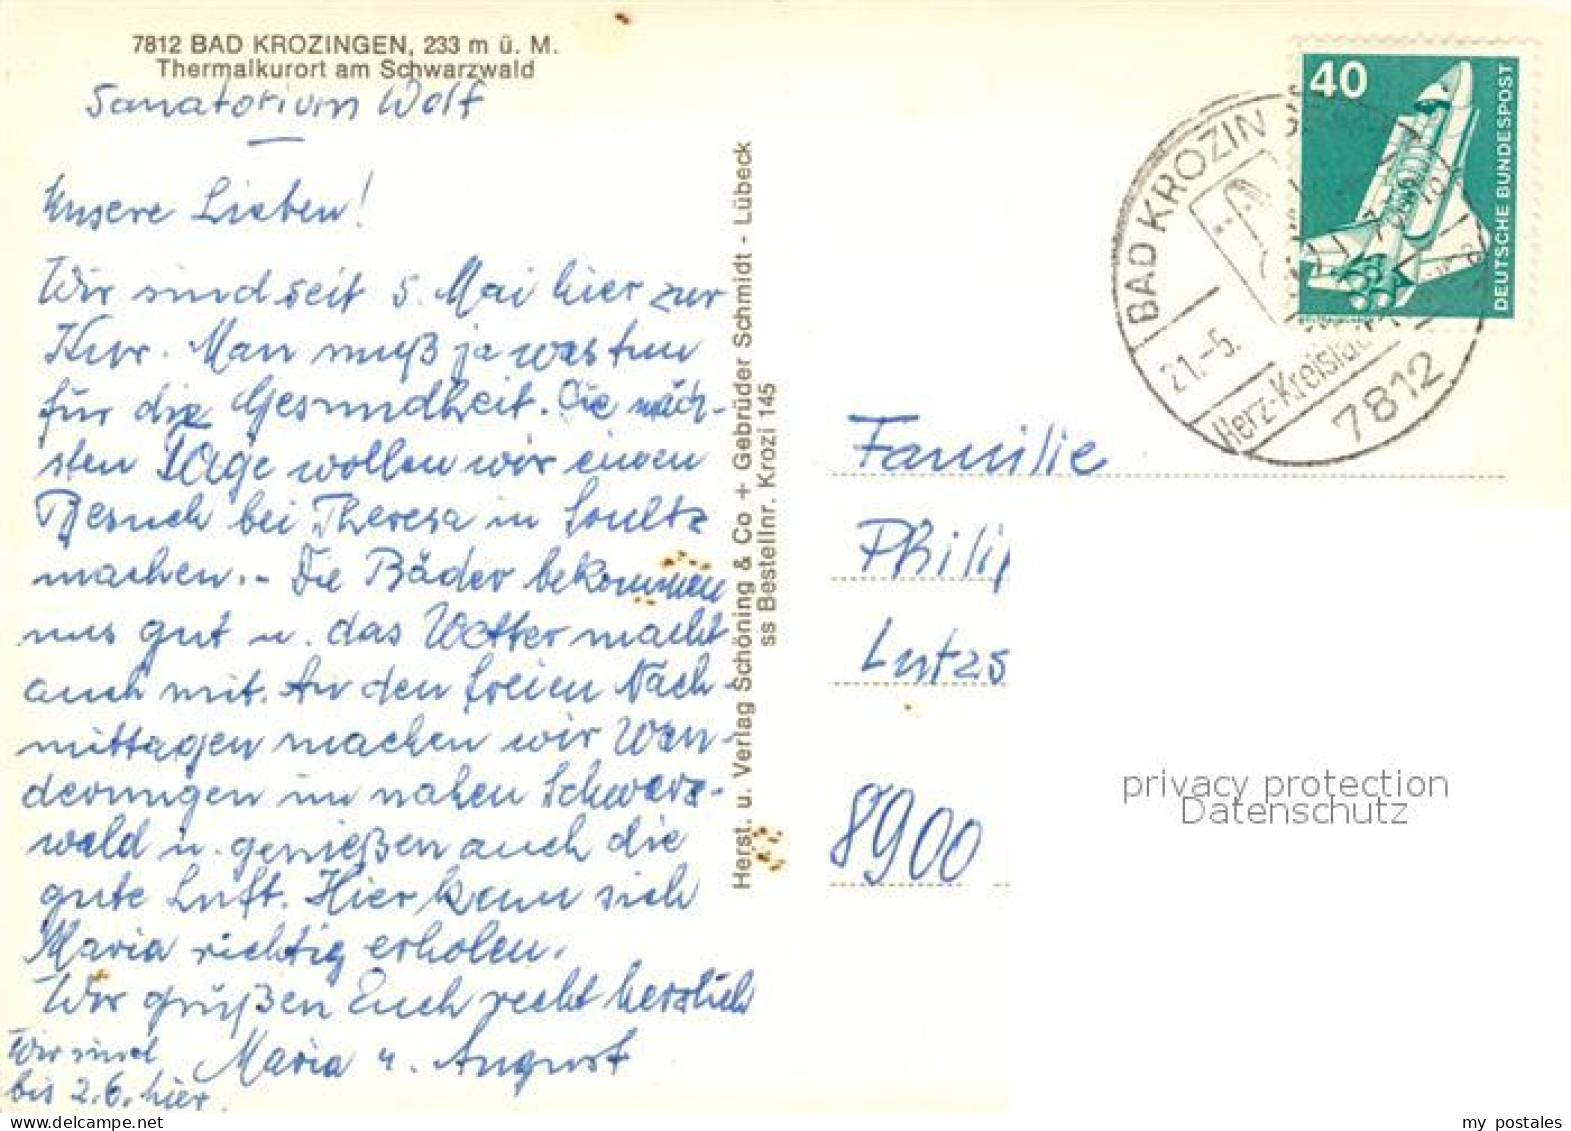 7812 BAD KROZINGEN, 233 m ü. M.
Thermalkurort am Schwarzwald
Sanatorium Wolf
Unsere Lieben!
Wir sind seit 5. Mai hier zur
Kur. Man muß ja was tun
für die Gesundheit. Die näch-
sten Tage wollen wir einen
Besuch bei Theresa in Soultz
machen. - Die Bäder bekommen
uns gut u. das Wetter macht
auch mit. An den freien Nach-
mittagen machen wir Wan-
derungen im nahen Schwarz-
wald u. genießen auch die
gute Luft. Hier kann sich
Maria richtig erholen.
Wir grüßen Euch recht herzlich
Maria u. August
Wir sind
bis 2.6. hier.
Herst. u. Verlag Schöning & Co + Gebrüder Schmidt - Lübeck
ss Bestellnr. Krozi 145
40
DEUTSCHE BUNDESPOST
BAD KROZIN
21.-5.
Herz-Kreislauf
7812
Familie
Phili
Lutzs
8900
privacy protection
Datenschutz
my postales